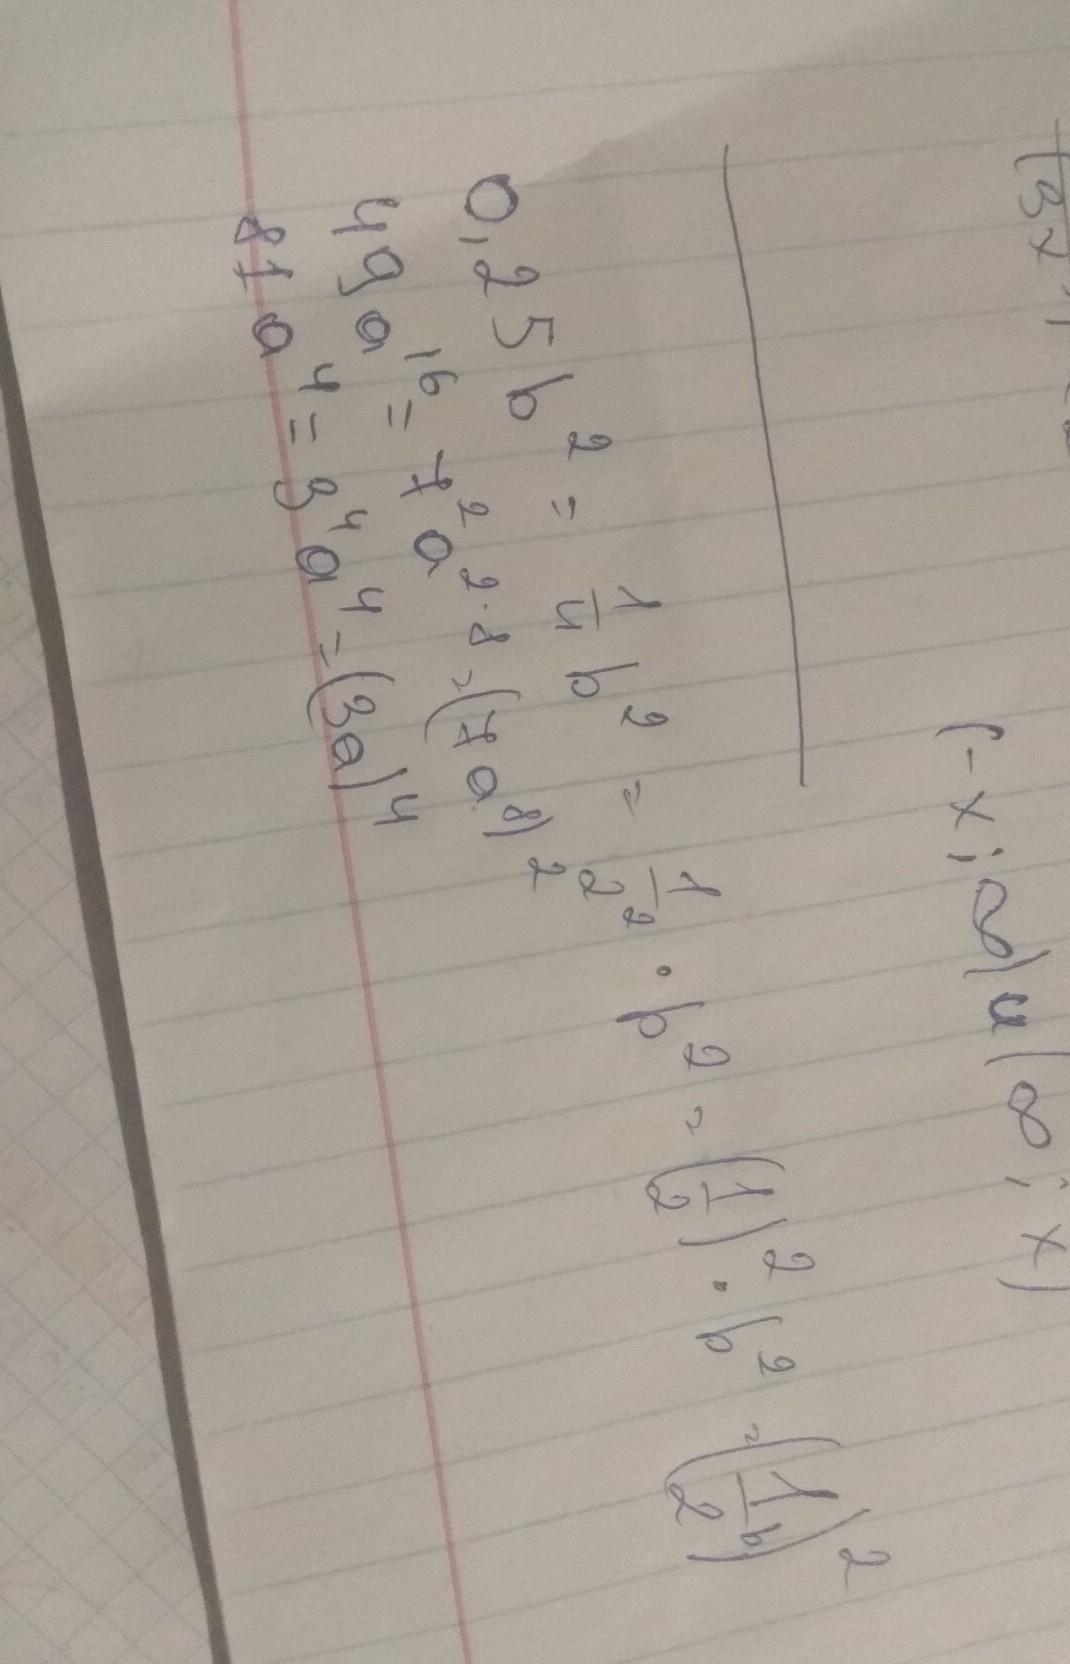 (-x; ∞) u (∞; x)
0,25b² = 1/4 b² = 1/2² · b² = (1/2)² · b² = (1/2 b)²
49a¹⁶ = 7²a²·⁸ = (7a⁸)²
81a⁴ = 3⁴a⁴ = (3a)⁴